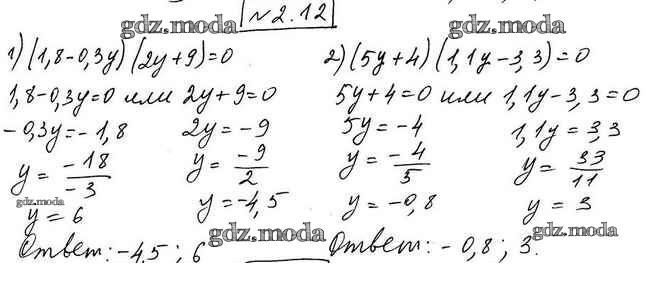 №2.12
gdz.moda gdz.moda
1) (1,8-0,3y)(2y+9)=0
1,8-0,3y=0 или 2y+9=0
-0,3y=-1,8 2y=-9
y=-18/-3 y=-9/2
gdz.moda
y=6 y=-4,5
Ответ: -4.5; 6
gdz.moda
2) (5y+4)(1,1y-3,3)=0
5y+4=0 или 1,1y-3,3=0
5y=-4 1,1y=3,3
y=-4/5 y=33/11
y=-0,8 y=3
Ответ: -0,8; 3.
gdz.moda